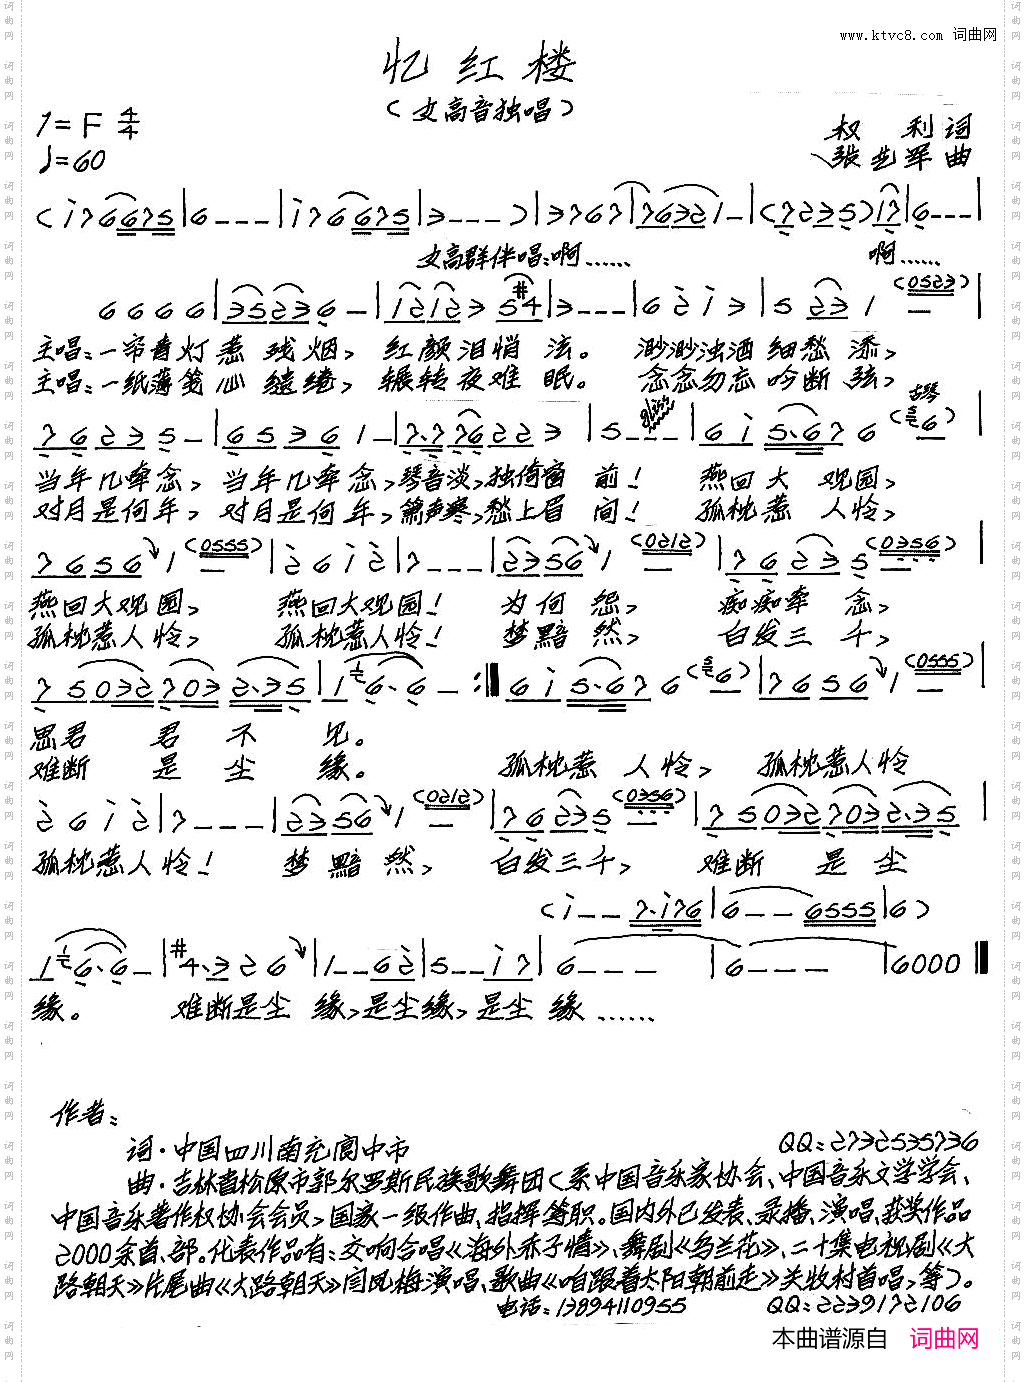 www.ktvc8.com 词曲网
忆红楼
(女高音独唱)
1=F 4/4
权 利 词
♩=60
张艺军 曲
(i7 6675|6---|i7 6 675|3---)|3767|76321-|(7235)17|6---|
女高群伴唱:啊…… 啊……
6666|35236-|12123 5#4|3---|62i3|5 23 1 (0523)|
主唱:一帘青灯惹残烟, 红颜泪悄泫。 渺渺浊酒细愁添,
主唱:一纸薄笺心缱绻, 辗转夜难眠。 念念勿忘吟断弦,
76235-|65361-|7.776223|5---|6i5.676(6)|
gliss
古琴
当年几牵念, 当年几牵念,琴音淡,独倚窗前! 燕回大观园,
对月是何年, 对月是何年,箫声寒,愁上眉间! 孤枕惹人怜,
76561(0555)|26i2|7---|23561(0212)|76235(0356)|
燕回大观园, 燕回大观园! 为何怨, 痴痴牵念,
孤枕惹人怜, 孤枕惹人怜! 梦黯然, 白发三千,
750327032.35|16.6-:‖6i5.676(6)|76561(0555)|
思君 君不见。
难断 是尘缘。 孤枕惹人怜, 孤枕惹人怜
26i2|7---|23561(0212)|76235(0356)|750327032.35|
孤枕惹人怜! 梦黯然, 白发三千, 难断 是尘
(i--7.i76|6--6555|6)
16.6-|#4.326|1--62|5--i7|6---|6---|6000‖
缘。 难断是尘缘,是尘缘,是尘缘……
作者:
词·中国四川南充阆中市 QQ:2732535736
曲·吉林省松原市郭尔罗斯民族歌舞团(系中国音乐家协会、中国音乐文学学会、
中国音乐著作权协会会员)国家一级作曲、指挥等职。国内外已发表、录播、演唱、获奖作品
2000余首、部。代表作品有:交响合唱《海外赤子情》、舞剧《乌兰花》、二十集电视剧《大
路朝天》片尾曲《大路朝天》闫凤梅演唱、歌曲《咱跟着太阳朝前走》关牧村首唱,等)。
电话:13894110955 QQ:2239172106
本曲谱源自 词曲网